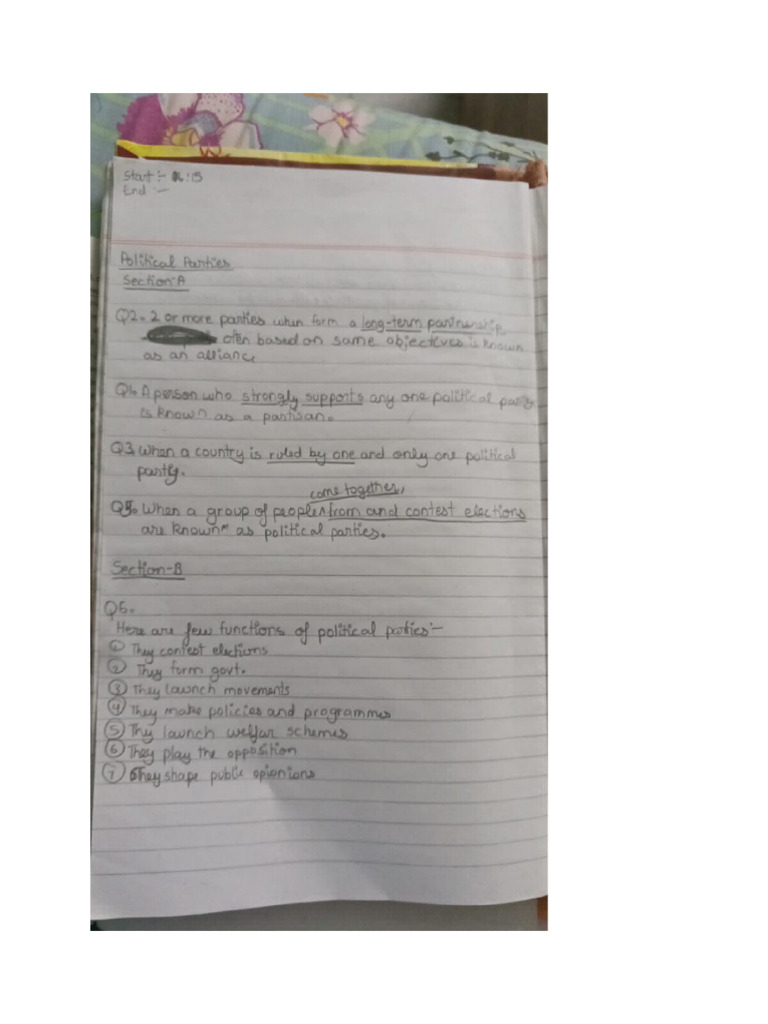 Start :- :15
End :-
Political Parties
Section-A
Q2. 2 or more parties when form a long-term partnership,
often based on same objectives is known
as an alliance
Q1. A person who strongly supports any one political party
is known as a partisan.
Q3. When a country is ruled by one and only one political
party.
come together,
Q5. When a group of people from and contest elections
are known as political parties.
Section-B
Q6.
Here are few functions of political parties:-
① They contest elections
② They form govt.
③ They lawnch movements
④ They make policies and programmes
⑤ Thy launch welfar schemes
⑥ They play the opposition
⑦ They shape public opinions